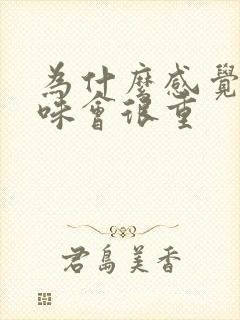 為什麼感覺
味會很重
君島美香